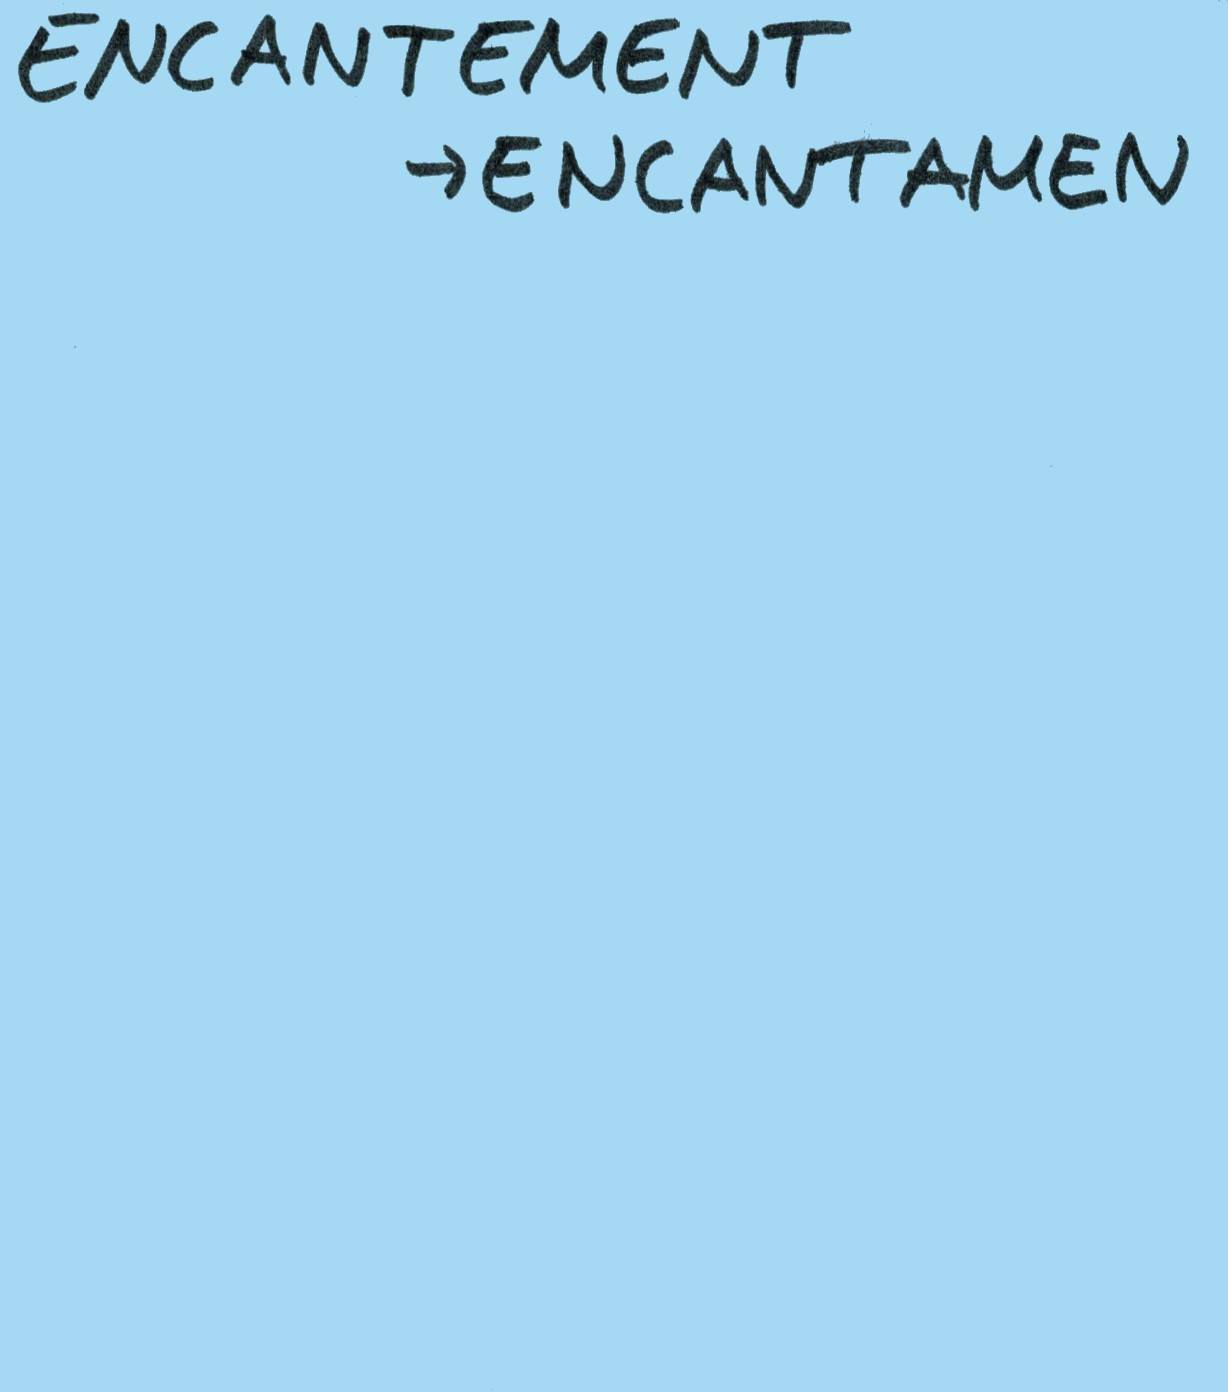 ENCANTEMENT
→ENCANTAMEN